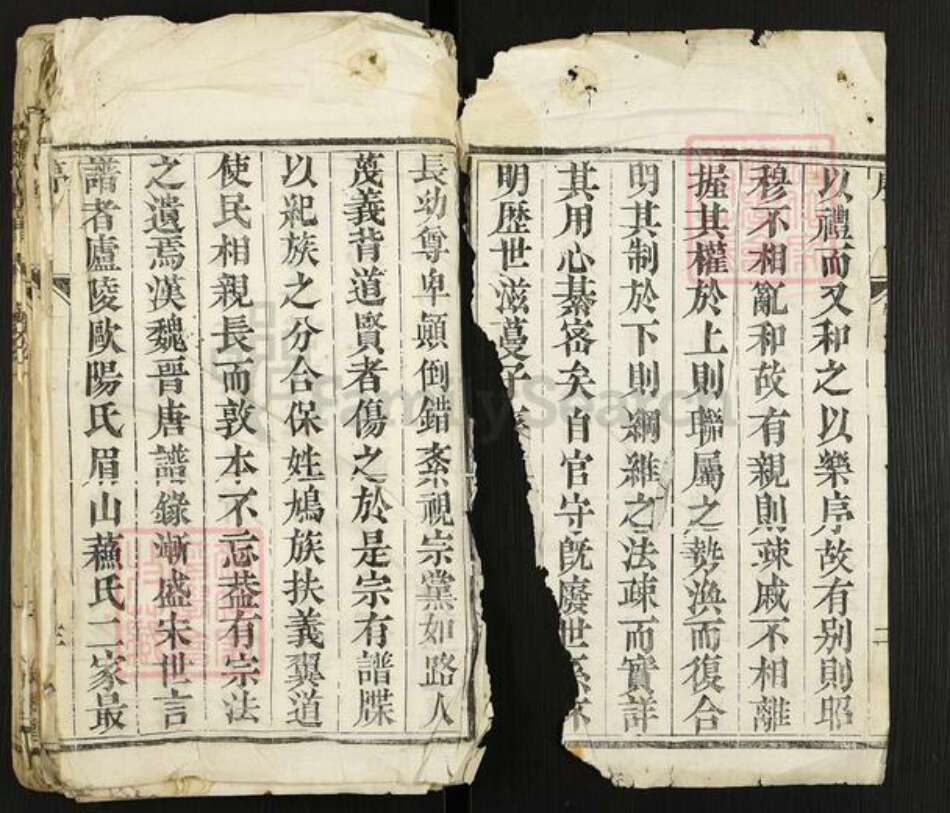 以禮而又和之以樂序故有別則昭
穆不相亂和故有親則疎戚不相離
握其權於上則聯屬之勢渙而復合
明其制於下則綱維之法疎而實詳
其用心綦宻矣自官守旣廢世系
明歷世滋蔓子
長幼尊卑顛倒錯紊視宗黨如路人
蔑義背道賢者傷之於是宗有譜牒
以紀族之分合保姓鳩族扶義翼道
使民相親長而敦本不忘葢有宗法
之遺焉漢魏晉唐譜錄漸盛宋世言
譜者盧陵歐陽氏眉山蘓氏二家最
序
FamilySearch